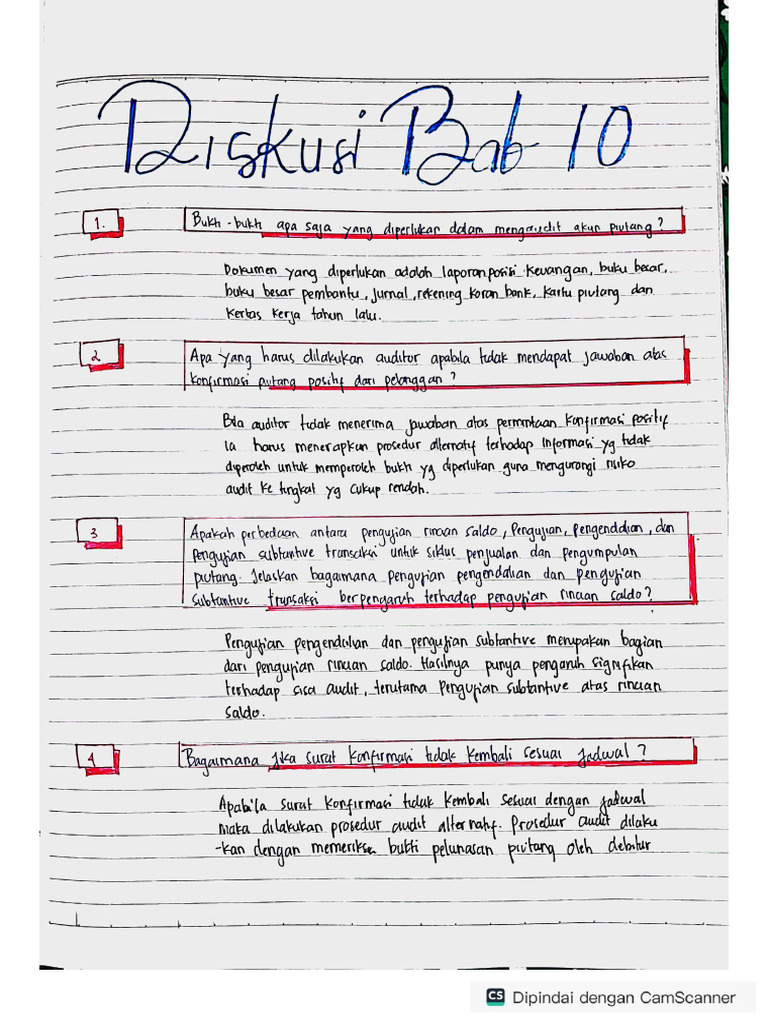 Diskusi Bab 10
1. Bukti-bukti apa saja yang diperlukan dalam mengaudit akun piutang?
Dokumen yang diperlukan adalah laporan posisi keuangan, buku besar,
buku besar pembantu, jurnal, rekening koran bank, kartu piutang dan
kertas kerja tahun lalu.
2 Apa yang harus dilakukan auditor apabila tidak mendapat jawaban atas
konfirmasi piutang positif dari pelanggan?
Bila auditor tidak menerima jawaban atas permintaan konfirmasi positif
ia harus menerapkan prosedur alternatif terhadap informasi yg tidak
diperoleh untuk memperoleh bukti yg diperlukan guna mengurangi risiko
audit ke tingkat yg cukup rendah.
3 Apakah perbedaan antara pengujian rincian saldo, Pengujian, Pengendalian, dan
Pengujian subtantive transaksi untuk siklus penjualan dan pengumpulan
piutang. Jelaskan bagaimana pengujian pengendalian dan pengujian
subtantive transaksi berpengaruh terhadap pengujian rincian saldo?
Pengujian pengendalian dan pengujian subtantive merupakan bagian
dari pengujian rincian saldo. Hasilnya punya pengaruh signifikan
terhadap sisa audit, terutama Pengujian subtantive atas rincian
saldo.
4 Bagaimana jika surat konfirmasi tidak kembali sesuai jadwal?
Apabila surat konfirmasi tidak kembali sesuai dengan jadwal
maka dilakukan prosedur audit alternatif. Prosedur audit dilaku
-kan dengan memeriksa bukti pelunasan piutang oleh debitur
CS Dipindai dengan CamScanner